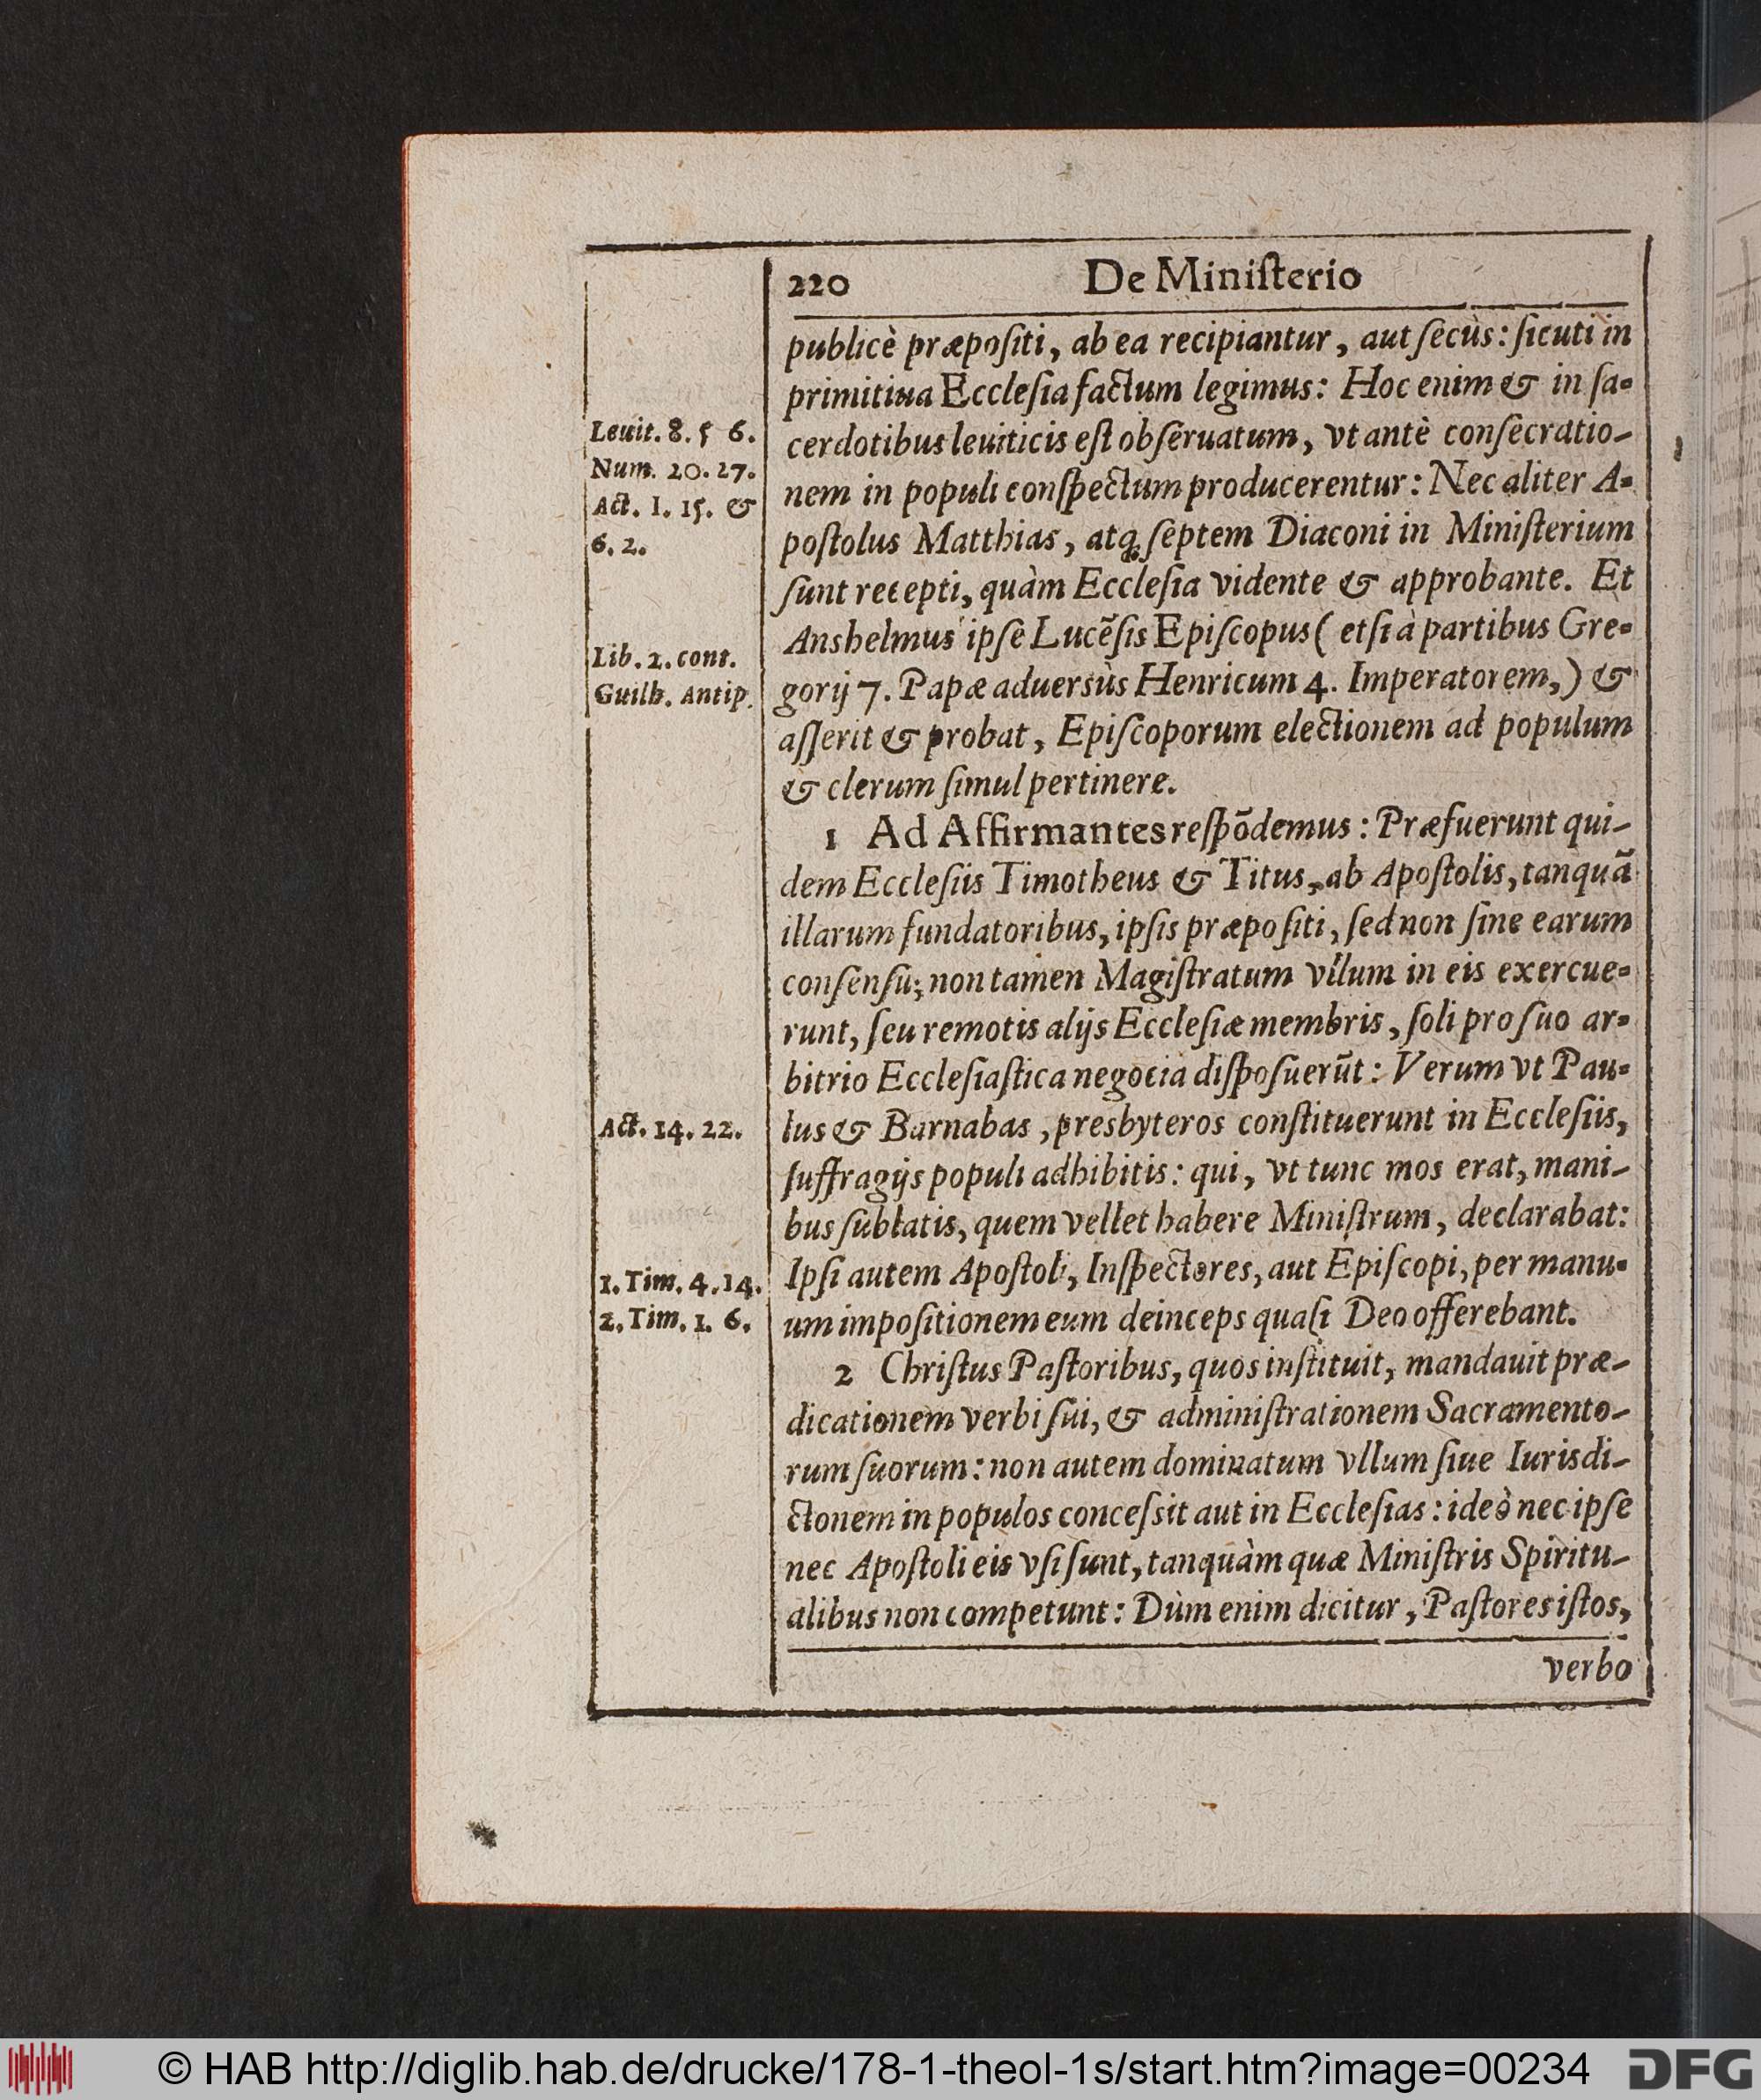 220 De Miniſterio
publicè præpoſiti, ab ea recipiantur, aut ſecùs: ſicuti in
primitiua Eccleſia factum legimus: Hoc enim & in ſa-
Leuit. 8. 5 6.
cerdotibus leuiticis eſt obſeruatum, vt antè conſecratio-
Num. 20. 27.
nem in populi conſpectum producerentur: Nec aliter A-
Act. 1. 15. &
poſtolus Matthias, atq; ſeptem Diaconi in Miniſterium
6. 2.
ſunt recepti, quàm Eccleſia vidente & approbante. Et
Anshelmus ipſe Lucẽſis Epiſcopus ( etſi à partibus Gre-
Lib. 2. cont.
gorij 7. Papæ aduersùs Henricum 4. Imperatorem,) &
Guilb. Antip.
aſſerit & probat, Epiſcoporum electionem ad populum
& clerum ſimul pertinere.
1 Ad Affirmantes reſpõdemus: Præfuerunt qui-
dem Eccleſiis Timotheus & Titus, ab Apoſtolis, tanquã
illarum fundatoribus, ipſis præpoſiti, ſed non ſine earum
conſenſu; non tamen Magiſtratum vllum in eis exercue-
runt, ſeu remotis alijs Eccleſiæ membris, ſoli pro ſuo ar-
bitrio Eccleſiaſtica negotia diſpoſuerũt: Verum vt Pau-
Act. 14. 22.
lus & Barnabas, presbyteros conſtituerunt in Eccleſiis,
ſuffragijs populi adhibitis: qui, vt tunc mos erat, mani-
bus ſublatis, quem vellet habere Miniſtrum, declarabat:
1. Tim. 4. 14.
Ipſi autem Apoſtoli, Inſpectores, aut Epiſcopi, per manu-
2. Tim. 1. 6.
um impoſitionem eum deinceps quaſi Deo offerebant.
2 Chriſtus Paſtoribus, quos inſtituit, mandauit præ-
dicationem verbi ſui, & adminiſtrationem Sacramento-
rum ſuorum: non autem dominatum vllum ſiue Iurisdi-
ctonem in populos conceſsit aut in Eccleſias: ideò nec ipſe
nec Apoſtoli eis vſi ſunt, tanquàm quæ Miniſtris Spiritu-
alibus non competunt: Dùm enim dicitur, Paſtores iſtos,
verbo
© HAB http://diglib.hab.de/drucke/178-1-theol-1s/start.htm?image=00234
DFG